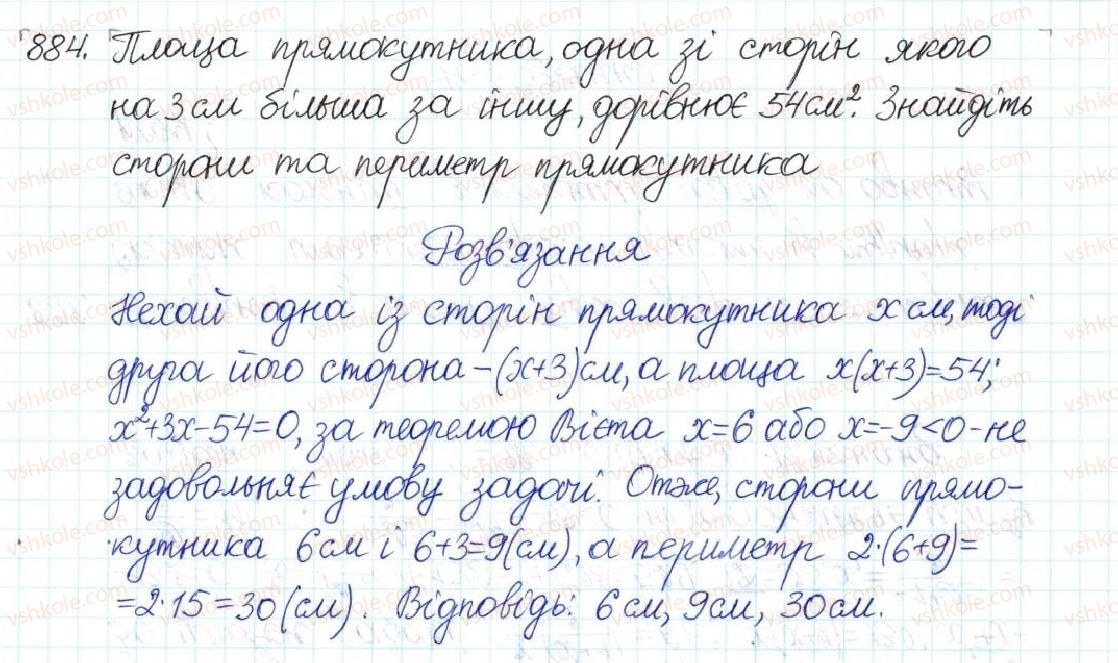 884. Площа прямокутника, одна зі сторін якого
на 3 см більша за іншу, дорівнює 54 см². Знайдіть
сторони та периметр прямокутника
Розв'язання
Нехай одна із сторін прямокутника x см, тоді
друга його сторона – (x+3) см, а площа x(x+3)=54;
x²+3x-54=0, за теоремою Вієта x=6 або x=-9<0 - не
задовольняє умову задачі. Отже, сторони прямо-
кутника 6 см і 6+3=9(см), а периметр 2·(6+9)=
=2·15=30(см). Відповідь: 6 см, 9 см, 30 см.